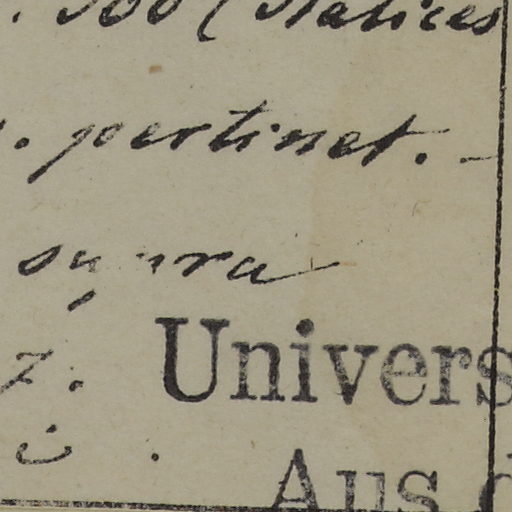 . 500 (Statices
. pertinet. -
supra
z.
Univers
i .
Aus d